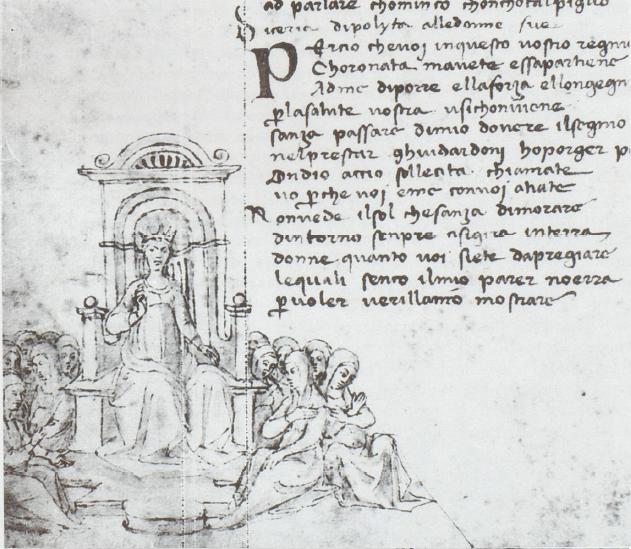 ad parlare chominco chonchotal piglio
Siceria dipolyta alledonne fue
Percio chevoi inquesto vostro regno
Choronata mavete essapartiene
Adme diporre ellaforza ellongegn
plasalute vostra
sanza passare dimio dovere ilsegno
nelprestar ghuidardoni hoporger p
Ondio accio sollecita chiamate
vo pche voi eme convoi atiate
Nonvede ilsol chesanza dimorare
dintorno senpre cisigira interra
donne quanto voi siete dapregiare
lequali sento ilmio parer noerra
pvoler mostrare